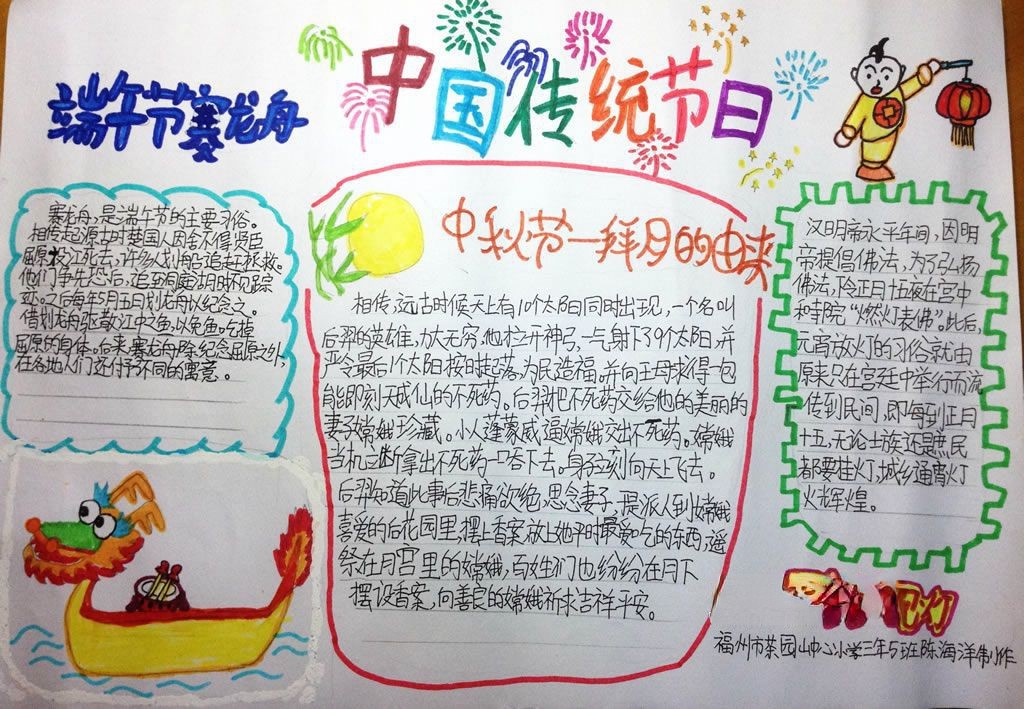 中国传统节日
端午节赛龙舟
赛龙舟,是端午节的主要习俗。
相传起源古时楚国人因舍不得贤臣
屈原投江死去,许多人划船追赶拯救。
他们争先恐后,追至洞庭湖时不见踪
迹。之后每年5月五日划龙舟以纪念之。
借划龙舟驱散江中之鱼,以免鱼吃掉
屈原的身体。后来,赛龙舟除纪念屈原之外,
在各地人们还付予不同的寓意。
中秋节一拜月的由来
相传,远古时候天上有10个太阳同时出现,一个名叫
后羿的英雄,力大无穷,他拉开神弓,一气射下了9个太阳,并
严令最后1个太阳按时起落,为民造福。并向王母求得一包
能即刻天成仙的不死药,后羿把不死药交给他的美丽的
妻子嫦娥珍藏。小人蓬蒙威逼嫦娥交出不死药。嫦娥
当机立断拿出不死药一口吞下去。身子立刻向天上飞去。
后羿知道此事后悲痛欲绝,思念妻子,是派人到嫦娥
喜爱的后花园里,摆上香案,放上她平时最爱吃的东西,遥
祭在月宫里的嫦娥,百姓们也纷纷在月下
摆设香案,向善良的嫦娥祈求吉祥平安。
汉明帝永平年间,因明
帝提倡佛法,为了弘扬
佛法,令正月十五夜在宫中
和寺院“燃灯表佛”。此后,
元宵放灯的习俗就由
原来只在宫廷中举行而流
传到民间,即每到正月
十五,无论士族还是庶民
都要挂灯,城乡通宵灯
火辉煌。
福州市茶园山中心小学三年5班陈海洋制作